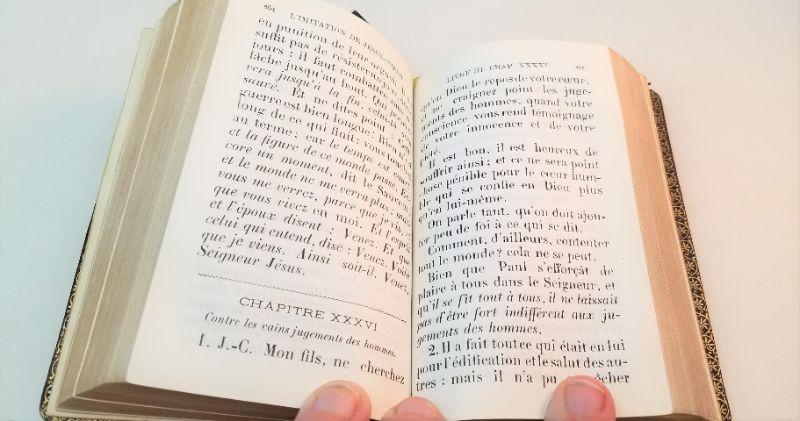 464 L'IMITATION DE JÉSUS-CHRIST
en punition de leur orgueil
suffit pas de résister
jours : il faut combattre
lâche jusqu'au bout. Qui
vera jusqu'à la fin,
sauvé. Et ne dites point
guerre est bien longue: Rien
long de ce qui finit: vous
au terme; car le temps est court
et la figure de ce monde passe.
core un moment, dit le Sauveur
et le monde ne me verra plus
vous me verrez, parce que je vis,
que vous vivez en moi. Et l'esprit
et l'époux disent : Venez. Et que
celui qui entend, dise : Venez. Voilà
que je viens. Ainsi soit-il. Venez,
Seigneur Jésus.
CHAPITRE XXXVI
Contre les vains jugements des hommes.
1. J.-C. Mon fils, ne cherchez
LIVRE III. CHAP. XXXVI. 465
qu'en Dieu le repos de votre cœur,
et ne craignez point les juge-
ments des hommes, quand votre
conscience vous rend témoignage
de votre innocence et de votre
Il est bon, il est heureux de
souffrir ainsi; et ce ne sera point
chose pénible pour le cœur hum-
ble qui se confie en Dieu plus
qu'en lui-même.
On parle tant, qu'on doit ajou-
ter peu de foi à ce qui se dit.
Comment, d'ailleurs, contenter
tout le monde? cela ne se peut.
Bien que Paul s'efforçât de
plaire à tous dans le Seigneur, et
qu'il se fît tout à tous, il ne laissait
pas d'être fort indifférent aux ju-
gements des hommes.
2. Il a fait tout ce qui était en lui
pour l'édification et le salut des au-
tres : mais il n'a pu